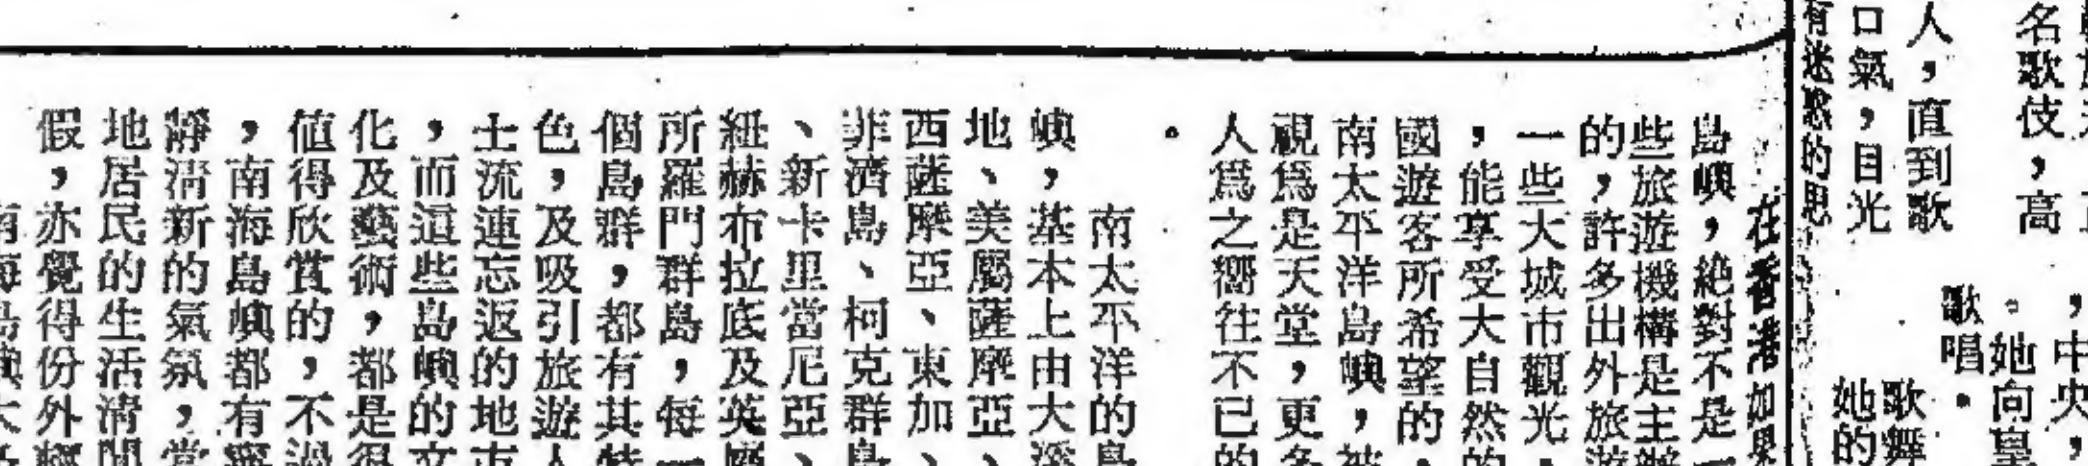 名歌伎，高
人，直到歌
口氣，目光
有迷惑的思
，中央，
。她向皇
歌唱。
歌舞
她的
在香港如果
島嶼，絕對不是一
些旅遊機構是主辦
的，許多出外旅遊
一些大城市觀光，
，能享受大自然的
國遊客所希望的，
南太平洋島嶼，被
視爲是天堂，更多
人爲之嚮往不已的
。
南太平洋的島
嶼，基本上由大溪
地、美屬薩摩亞、
西薩摩亞、東加、
非濟島、柯克群島
、新卡里當尼亞、
紐赫布拉底及英屬
所羅門群島，每一
個島群，都有其特
色，及吸引旅遊人
士流連忘返的地方
，而這些島嶼的文
化及藝術，都是很
值得欣賞的，不過
，南海島嶼都有寧
靜清新的氣氛，當
地居民的生活清閒
假，亦覺得份外輕
南海島嶼大